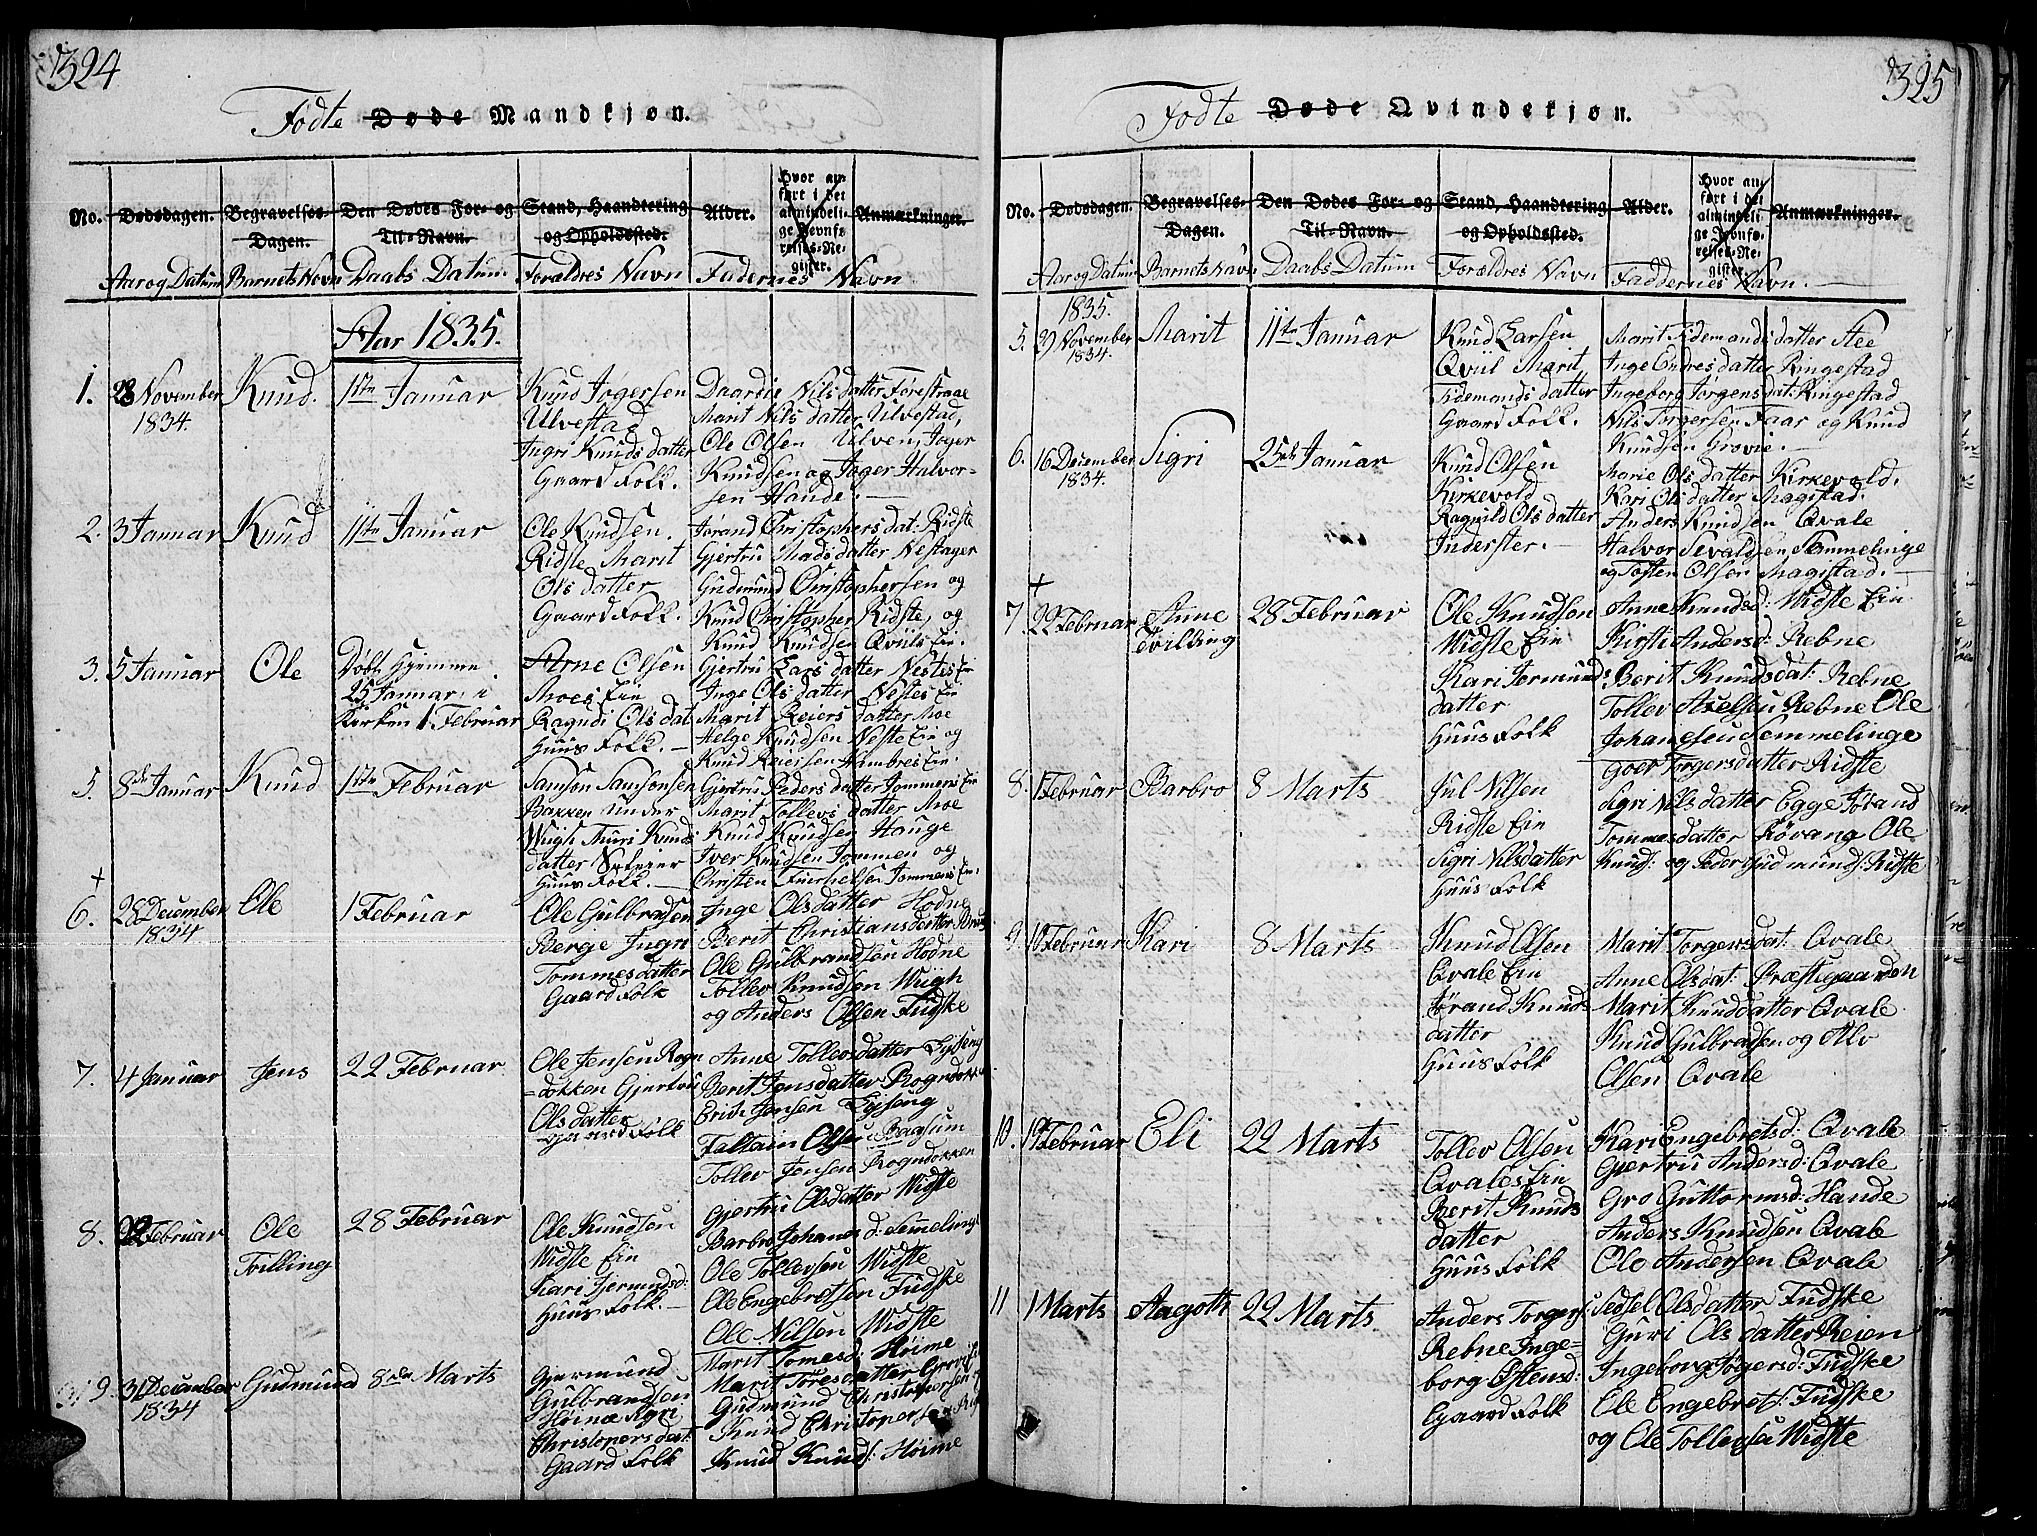 324
Fødte Døde Mandkjøn.
No.
Dødsdagen.
Begravelses-
Dagen.
Den Dødes For- og
Til-Navn.
Stand, Haandtering
og Opholdssted.
Alder.
Hvor an-
ført i det
almindeli-
ge Jevnfø-
relses-Re-
gister.
Anmærkninger.
Aar og Datum
Barnets Navn
Daabs Datum
Forældres Navn
Fadernes Navn
Aar 1835.
1.
28 November
1834.
Knud.
1ste Januar
Knud Jøgersen
Ulvestad
Ingri Knuds datter
Gaard Folk.
Daardie Nils datter Førestraae
Marit Nils datter Ulvestad,
Ole Olsen Ulven, Jøger
Knudsen og Jøger Halvor-
sen Hande.
2.
3 Januar
Knud
11te Januar
Ole Knudsen.
Ridste Marit
Ols datter
Gaard Folk.
Jørand Christophers dat: Ridste
Gjertru Mads datter Nestager
Gudmund Christophersen og
Knud Christopher Ridste, og
Knud Knudsen Qviils Ein.
3.
5 Januar
Ole
Døbt Hjemme
25 Januar i
Kirken 1 Februar
Arne Olsen
Moes Ein
Ragndi Ols dat
Huus Folk.
Gjertru Lars datter Nestes Ein
Inge Ols datter Nestes Ein
Marit Reiers datter Moe
Helge Knudsen Neste Ein og
Knud Reiersen Hambres Ein.
5.
8de Januar
Knud
1ste Februar
Samson Samsonsen
Bakken under
Wigh Thuri Knuds
datter
Huus Folk.
Gjertru Peders datter Jommens Ein
Marit Tollevs datter Moe
Knud Knudsen Hauge
Iver Knudsen Jommen og
Christen Jommens Ein.
+
6.
28 December
1834
Ole
1 Februar
Ole Gulbrandsen
Berge Ingri
Tommesdatter
Gaard Folk
Inge Olsdatter Hodne
Berit Christiansdatter
Ole Gulbrandsen Hodne
Tollev Knudsen Wigh
og Anders Olsen Fudske
7.
4 Januar
Jens
22 Februar
Ole Jensen Rogn
=dokken Gjertru
Olsdatter
Gaard Folk
Anne Tollevsdatter
Berit Jensdatter Rogndokk
Erich Jensen
Olsen Bagsum
Tollev Jensen Rogndokken
8.
22 Februar
Ole
Tvilling
28 Februar
Ole Knudsen
Widste Ein
Kari Jermundsd:
Huus Folk.
Gjertru Olsdatter Widste
Barbro Johanes d: Semelinge
Ole Tollevsen Widste
Ole Engebretsen Fudske
Ole Nilsen Widste
9.
31 December
1834
Gudmund
8de Marts
Gjermund
Gulbrandsen
Høime Sigri
Christopersdat:
Gaard Folk
Marit Tomesd: Høime
Marit Toresdatter
Gudmund Christophersen
Knud Christopersen
Knud Knuds: Høime
325
Fødte Døde Qvindekjøn.
No.
Dødsdagen.
Begravelses-
Dagen.
Den Dødes For- og
Til-Navn.
Stand, Haandtering
og Opholdssted.
Alder.
Hvor an-
ført i det
almindeli-
ge Jevnfø-
relses-Re-
gister.
Anmærkninger.
Aar og Datum
Barnets Navn
Daabs Datum
Forældres Navn
Faddernes Navn.
1835.
5.
29 November
1834.
Marit
11te Januar
Knud Larsen
Qviil Marit
Tidemands datter
Gaard Folk.
Marit Tidemands datter Aee
Inge Endres datter Ringestad
Ingeborg Jørgens dat: Ringestad
Nils Torgersen Faar og Knud
Knudsen Grøvie.
6.
16 December
1834.
Sigri
25de Januar
Knud Olsen
Kirkevold
Ragnild Ols datter
Inderster.
Marie Ols datter Kirkevold.
Kari Ols datter Magistad.
Anders Knudsen Qvale
Halvor Sevaldsen Semmelinge
og Tosten Olsen Magistad.
+
7.
22 Februar
Anne
Tvilding
28 Februar
Ole Knudsen
Widste Ein
Kari Jermunds
datter
Huus Folk
Anne Knudsd: Widste Ein
Kirsti Andersd: Rebne
Berit Knudsdat: Rebne
Tollev Axelsen Rebne Ole
Johanesen Semmelinge
8.
1 Februar
Barbro
8 Marts
Jul Nilsen
Ridste Ein
Sigri Nilsdatter
Huus Folk
Goer Torgersdatter Ridste
Sigri Nilsdatter Egge Jørand
Tommesdatter Røvang Ole
Knuds: og Peder Gudmunds: Ridste
9.
10 Februar
Kari
8 Marts
Knud Olsen
Qvale Ein
Jørand Knuds
datter
Huus Folk
Marit Torgersdat: Qvale
Anne Olsdat: Præstegaarden
Marit Knuddatter Qvale
Knud Gulbrandsen og Alv
Olsen Qvale
10.
19 Februar
Eli
22 Marts
Tollev Olsen
Qvales Ein
Berit Knuds
datter
Huus Folk
Kari Engebretsd: Qvale
Gjertru Andersd: Qvale
Gro Guttormsd: Hande
Anders Knudsen Qvale
Ole Andersen Qvale
11
1 Marts
Aagoth
22 Marts
Anders Torgers:
Rebne Inge=
borg Østensd:
Gaard Folk
Sedsel Olsdatter Fudske
Guri Ols datter Reien
Ingeborg Jøgersd: Fudske
Ole Engebrets: Fudske
og Ole Tollevsen Widste